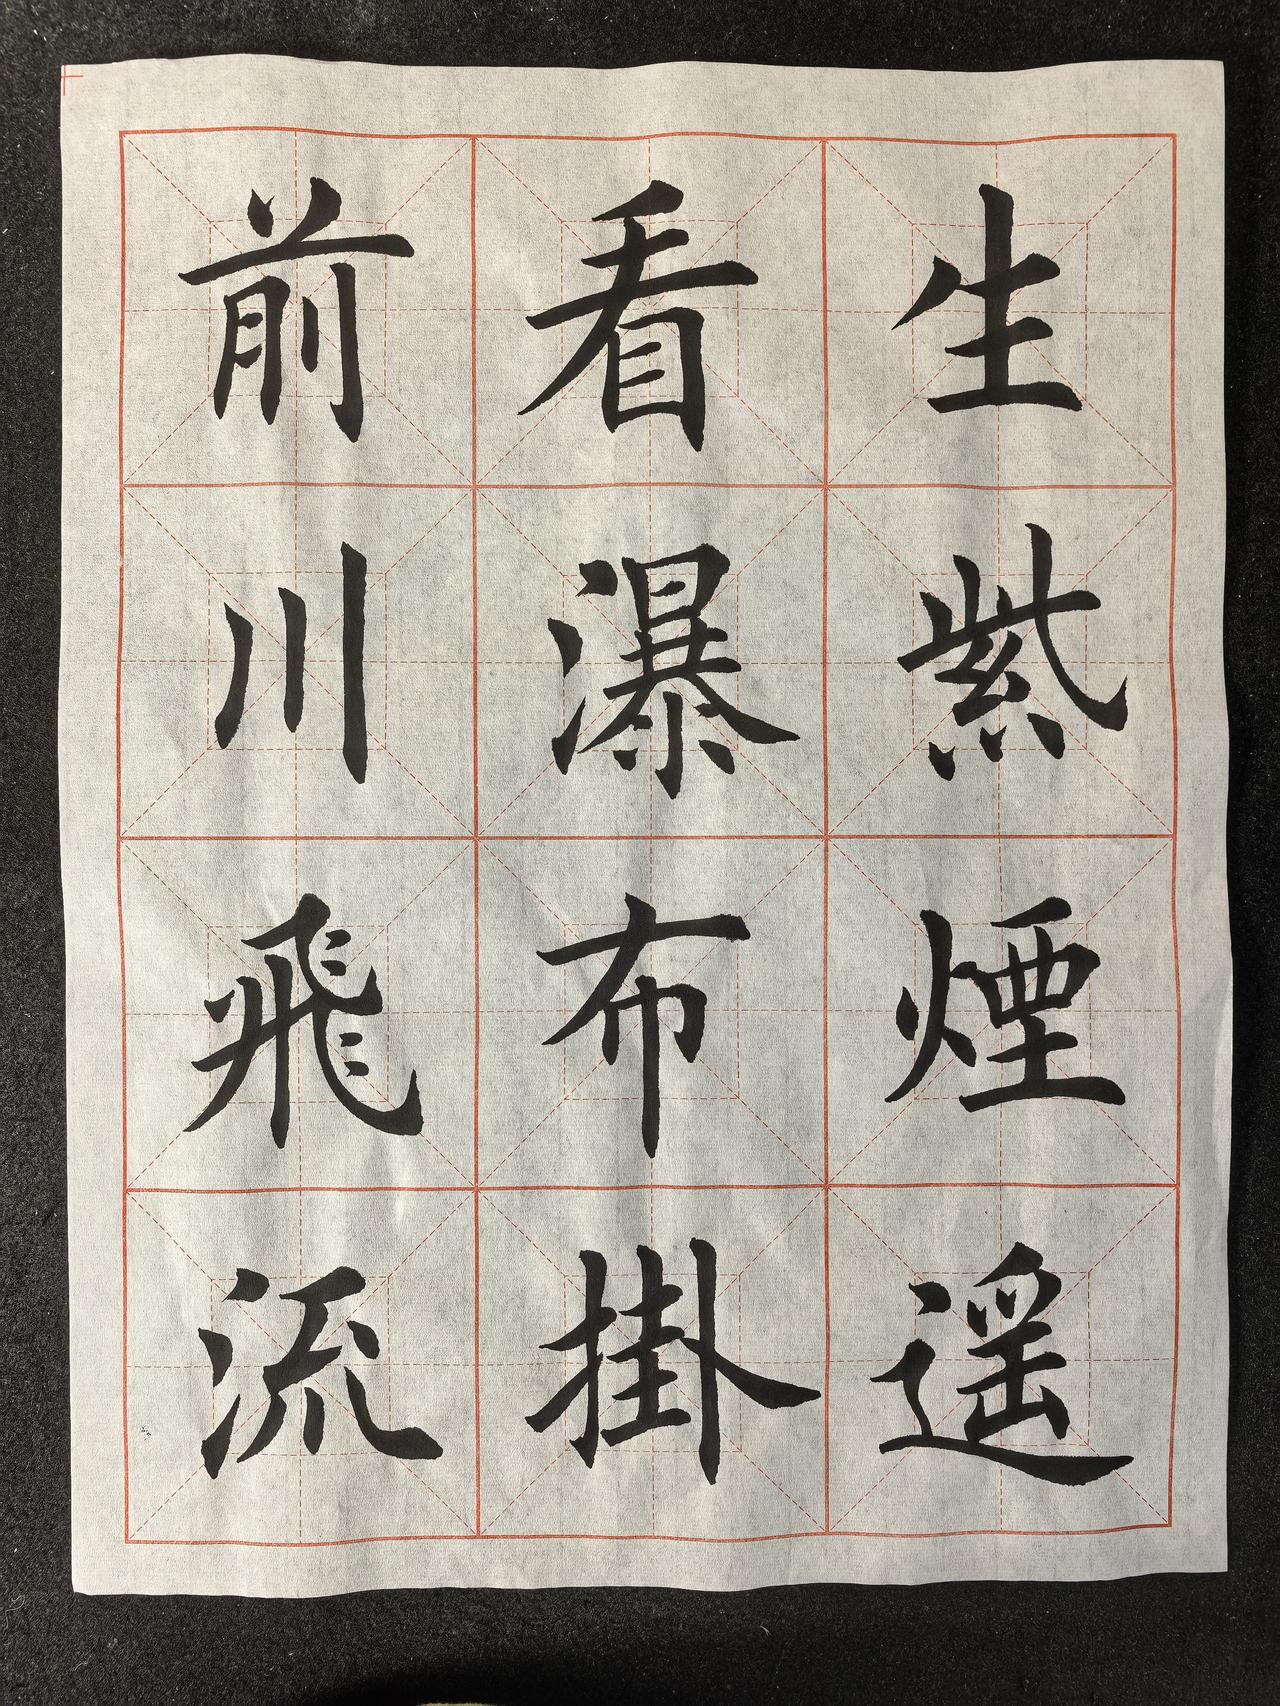 生紫煙遥
看瀑布掛
前川飛流